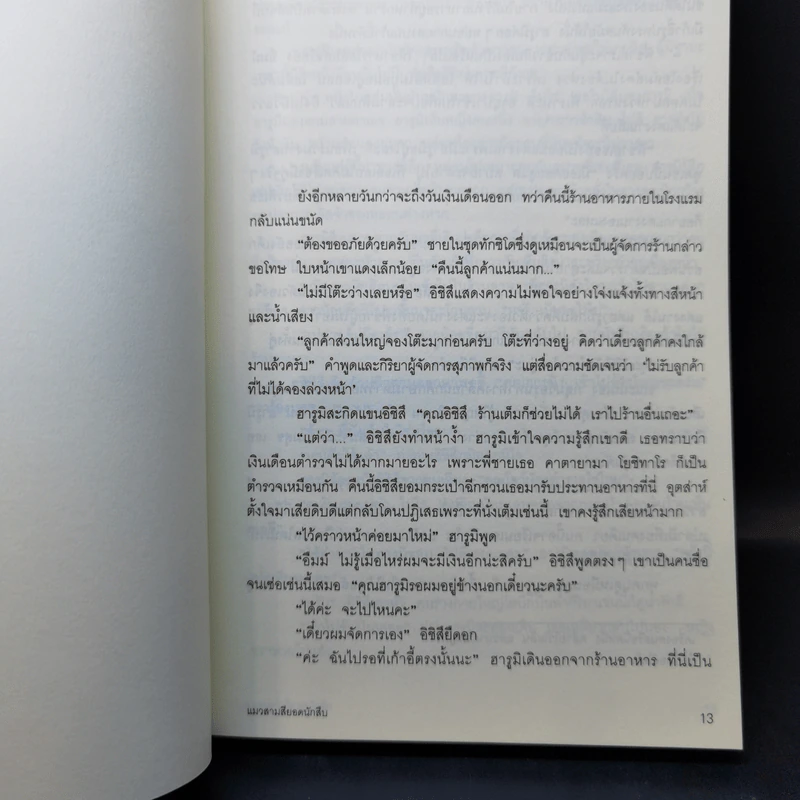 ยังอีกหลายวันกว่าจะถึงวันเงินเดือนออก ทว่าคืนนี้ร้านอาหารภายในโรงแรม
กลับแน่นขนัด
“ต้องขออภัยด้วยครับ” ชายในชุดทักซิโดซึ่งดูเหมือนจะเป็นผู้จัดการร้านกล่าว
ขอโทษ ใบหน้าเขาแดงเล็กน้อย “คืนนี้ลูกค้าแน่นมาก...”
“ไม่มีโต๊ะว่างเลยหรือ” อิชิสึแสดงความไม่พอใจอย่างโจ่งแจ้งทั้งทางสีหน้า
และน้ำเสียง
“ลูกค้าส่วนใหญ่จองโต๊ะมาก่อนครับ โต๊ะที่ว่างอยู่ คิดว่าเดี๋ยวลูกค้าคงใกล้
มาแล้วครับ” คำพูดและกิริยาผู้จัดการสุภาพก็จริง แต่สื่อความชัดเจนว่า ‘ไม่รับลูกค้า
ที่ไม่ได้จองล่วงหน้า’
ฮารูมิสะกิดแขนอิชิสึ “คุณอิชิสึ ร้านเต็มก็ช่วยไม่ได้ เราไปร้านอื่นเถอะ”
“แต่ว่า...” อิชิสึยังทำหน้าง้ำ ฮารูมิเข้าใจความรู้สึกเขาดี เธอทราบว่า
เงินเดือนตำรวจไม่ได้มากมายอะไร เพราะพี่ชายเธอ คาตายามา โยชิทาโร ก็เป็น
ตำรวจเหมือนกัน คืนนี้อิชิสึยอมกระเป๋าฉีกชวนเธอมารับประทานอาหารที่นี่ อุตส่าห์
ตั้งใจมาเสียดิบดีแต่กลับโดนปฏิเสธเพราะที่นั่งเต็มเช่นนี้ เขาคงรู้สึกเสียหน้ามาก
“ไว้คราวหน้าค่อยมาใหม่” ฮารูมิพูด
“อืมม์ ไม่รู้เมื่อไหร่ผมจะมีเงินอีกน่ะสิครับ” อิชิสึพูดตรงๆ เขาเป็นคนซื่อ
จนเซ่อเช่นนี้เสมอ “คุณฮารูมิรอผมอยู่ข้างนอกเดี๋ยวนะครับ”
“ได้ค่ะ จะไปไหนคะ”
“เดี๋ยวผมจัดการเอง” อิชิสึยืดอก
“ค่ะ ฉันไปรอที่เก้าอี้ตรงนั้นนะ” ฮารูมิเดินออกจากร้านอาหาร ที่นี่เป็น
แมวสามสียอดนักสืบ
13